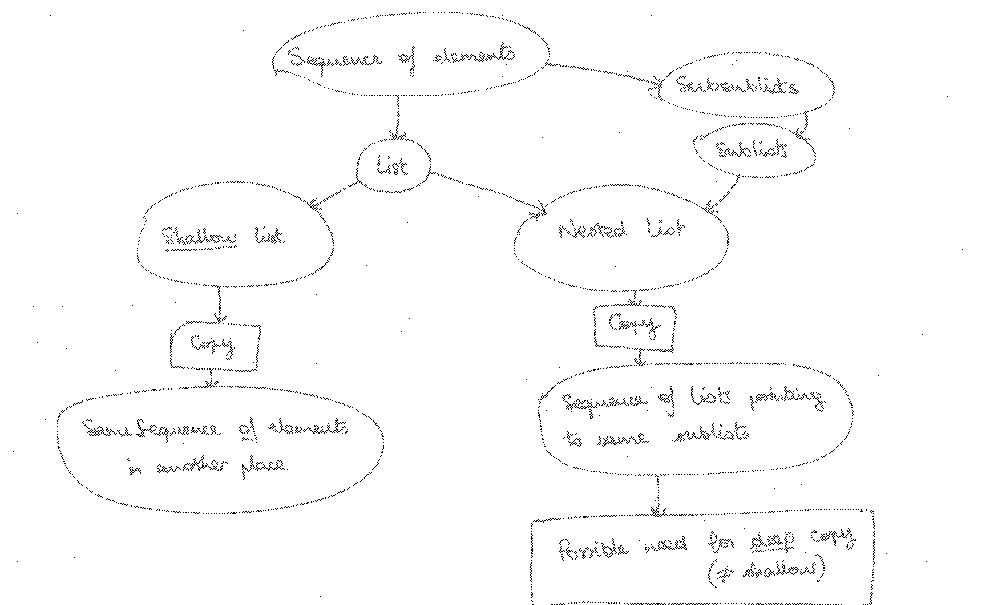 Sequence of elements
Subsublists
Sublists
List
Shallow list
Nested List
Copy
Copy
Same Sequence of elements
in another place
Sequence of Lists pointing
to same sublists
Possible need for deep copy
(≠ shallow)